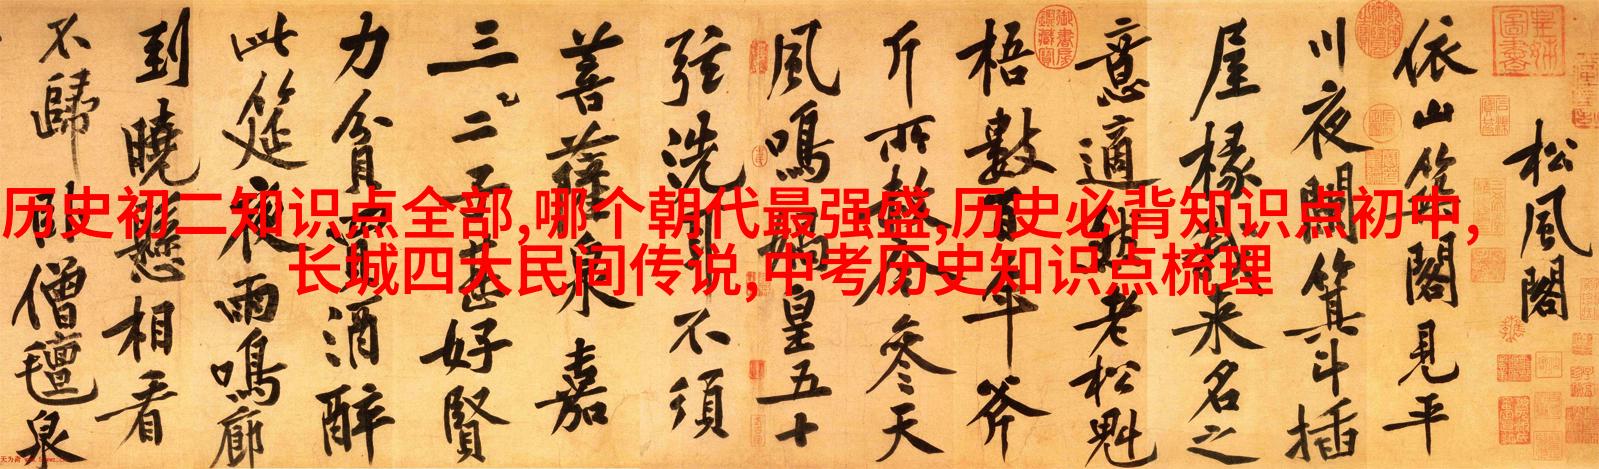 历史初二知识点全部,哪个朝代最强盛,历史必背知识点初中,
长城四大民间传说,中考历史知识点梳理
松風閣
依山築閣見平
川夜闌箕斗插
屋椽我來名之
意適然老松魁
梧數百年斧
斤所赦今參天
風鳴媧皇五十
弦洗耳不須
菩薩泉嘉
三二子甚好賢
力貧買酒醉
此筵夜雨鳴廊
到曉懸相看
不歸臥僧氈泉